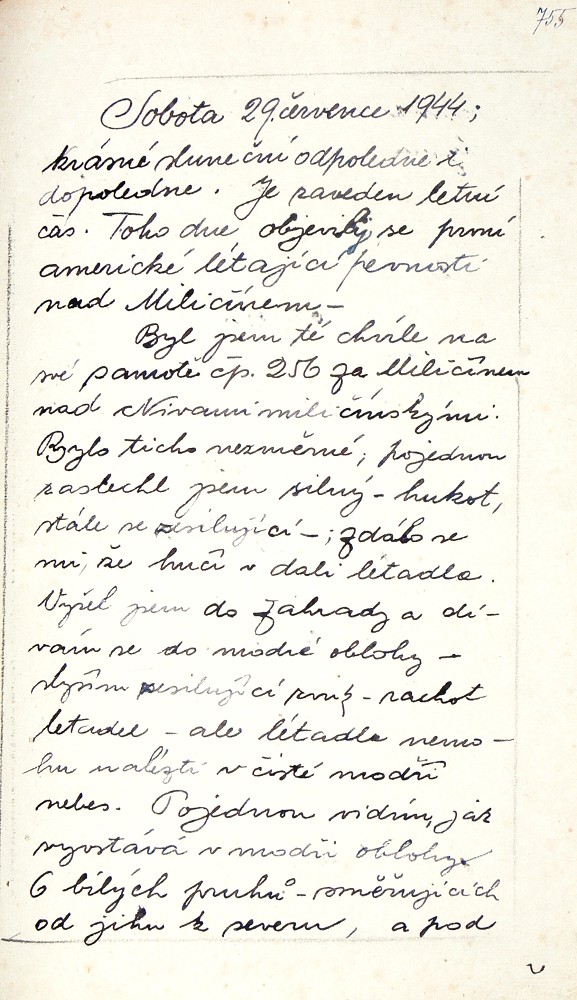 755
Sobota 29 července 1944;
krásné sluneční odpoledne i
dopoledne. Je zaveden letní
čas. Toho dne objevily se první
americké létající pevnosti
nad Miličínem –
Byl jsem té chvíle na
své samotě čp. 256 za Miličínem
nad Nivami miličínskými.
Bylo ticho nezměrné; pojednou
zaslechl jsem silný – hukot,
stále se zesilující –; zdálo se
mi, že hučí v dáli létadla.
Vyšel jsem do zahrady a dí-
vám se do modré oblohy –
slyším zesilující zvuk – rachot
letadel – ale létadla nemo-
hu nalézti v čisté modři
nebes. Pojednou vidím, jak
vyvstává v modři oblohy
6 bílých pruhů – směřujících
od jihu k severu, a pod